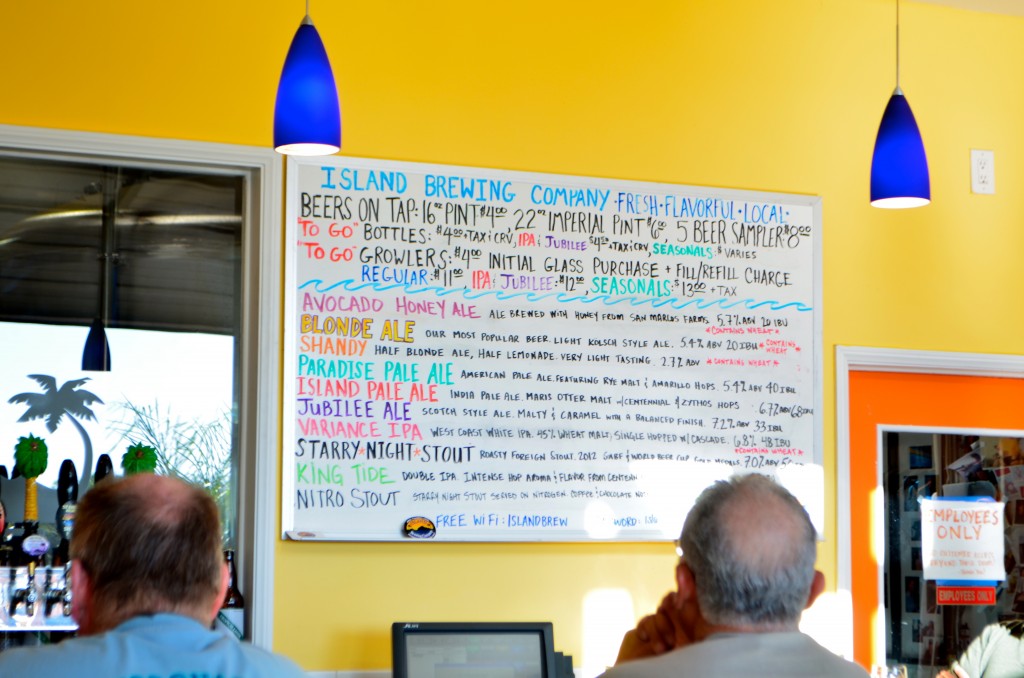 ISLAND BREWING COMPANY·FRESH·FLAVORFUL·LOCAL·
BEERS ON TAP: 16oz PINT $4.00, 22oz IMPERIAL PINT $6.00 5 BEER SAMPLER $8.00
"TO GO" BOTTLES: $4.00+TAX+CRV, IPA & JUBILEE $4.50+TAX+CRV, SEASONALS: $ VARIES
"TO GO" GROWLERS: $4.00 INITIAL GLASS PURCHASE + FILL/REFILL CHARGE
REGULAR: $11.00, IPA & JUBILEE: $12.00, SEASONALS: $13.00 + TAX
AVOCADO HONEY ALE ALE BREWED WITH HONEY FROM SAN MARCOS FARMS 5.7% ABV 20 IBU
*CONTAINS WHEAT*
BLONDE ALE OUR MOST POPULAR BEER. LIGHT KOLSCH STYLE ALE. 5.4% ABV 20 IBU *CONTAINS WHEAT*
SHANDY HALF BLONDE ALE, HALF LEMONADE. VERY LIGHT TASTING. 2.7% ABV *CONTAINS WHEAT*
PARADISE PALE ALE AMERICAN PALE ALE. FEATURING RYE MALT & AMARILLO HOPS. 5.4% ABV 40 IBU
ISLAND PALE ALE INDIA PALE ALE. MARIS OTTER MALT W/CENTENNIAL & ZYTHOS HOPS 6.7% ABV 68 IBU
JUBILEE ALE SCOTCH STYLE ALE. MALTY & CARAMEL WITH A BALANCED FINISH. 7.2% ABV 33 IBU
VARIANCE IPA WEST COAST WHITE IPA. 45% WHEAT MALT, SINGLE HOPPED W/ CASCADE. 6.8% 48 IBU
*CONTAINS WHEAT*
STARRY*NIGHT*STOUT ROASTY FOREIGN STOUT. 2012 GABF & WORLD BEER CUP GOLD 7.0% ABV
KING TIDE DOUBLE IPA. INTENSE HOP AROMA & FLAVOR FROM
NITRO STOUT STARRY NIGHT STOUT SERVED ON NITROGEN. COFFEE & CHOCOLATE
FREE WIFI: ISLANDBREW
EMPLOYEES
ONLY
EMPLOYEES ONLY